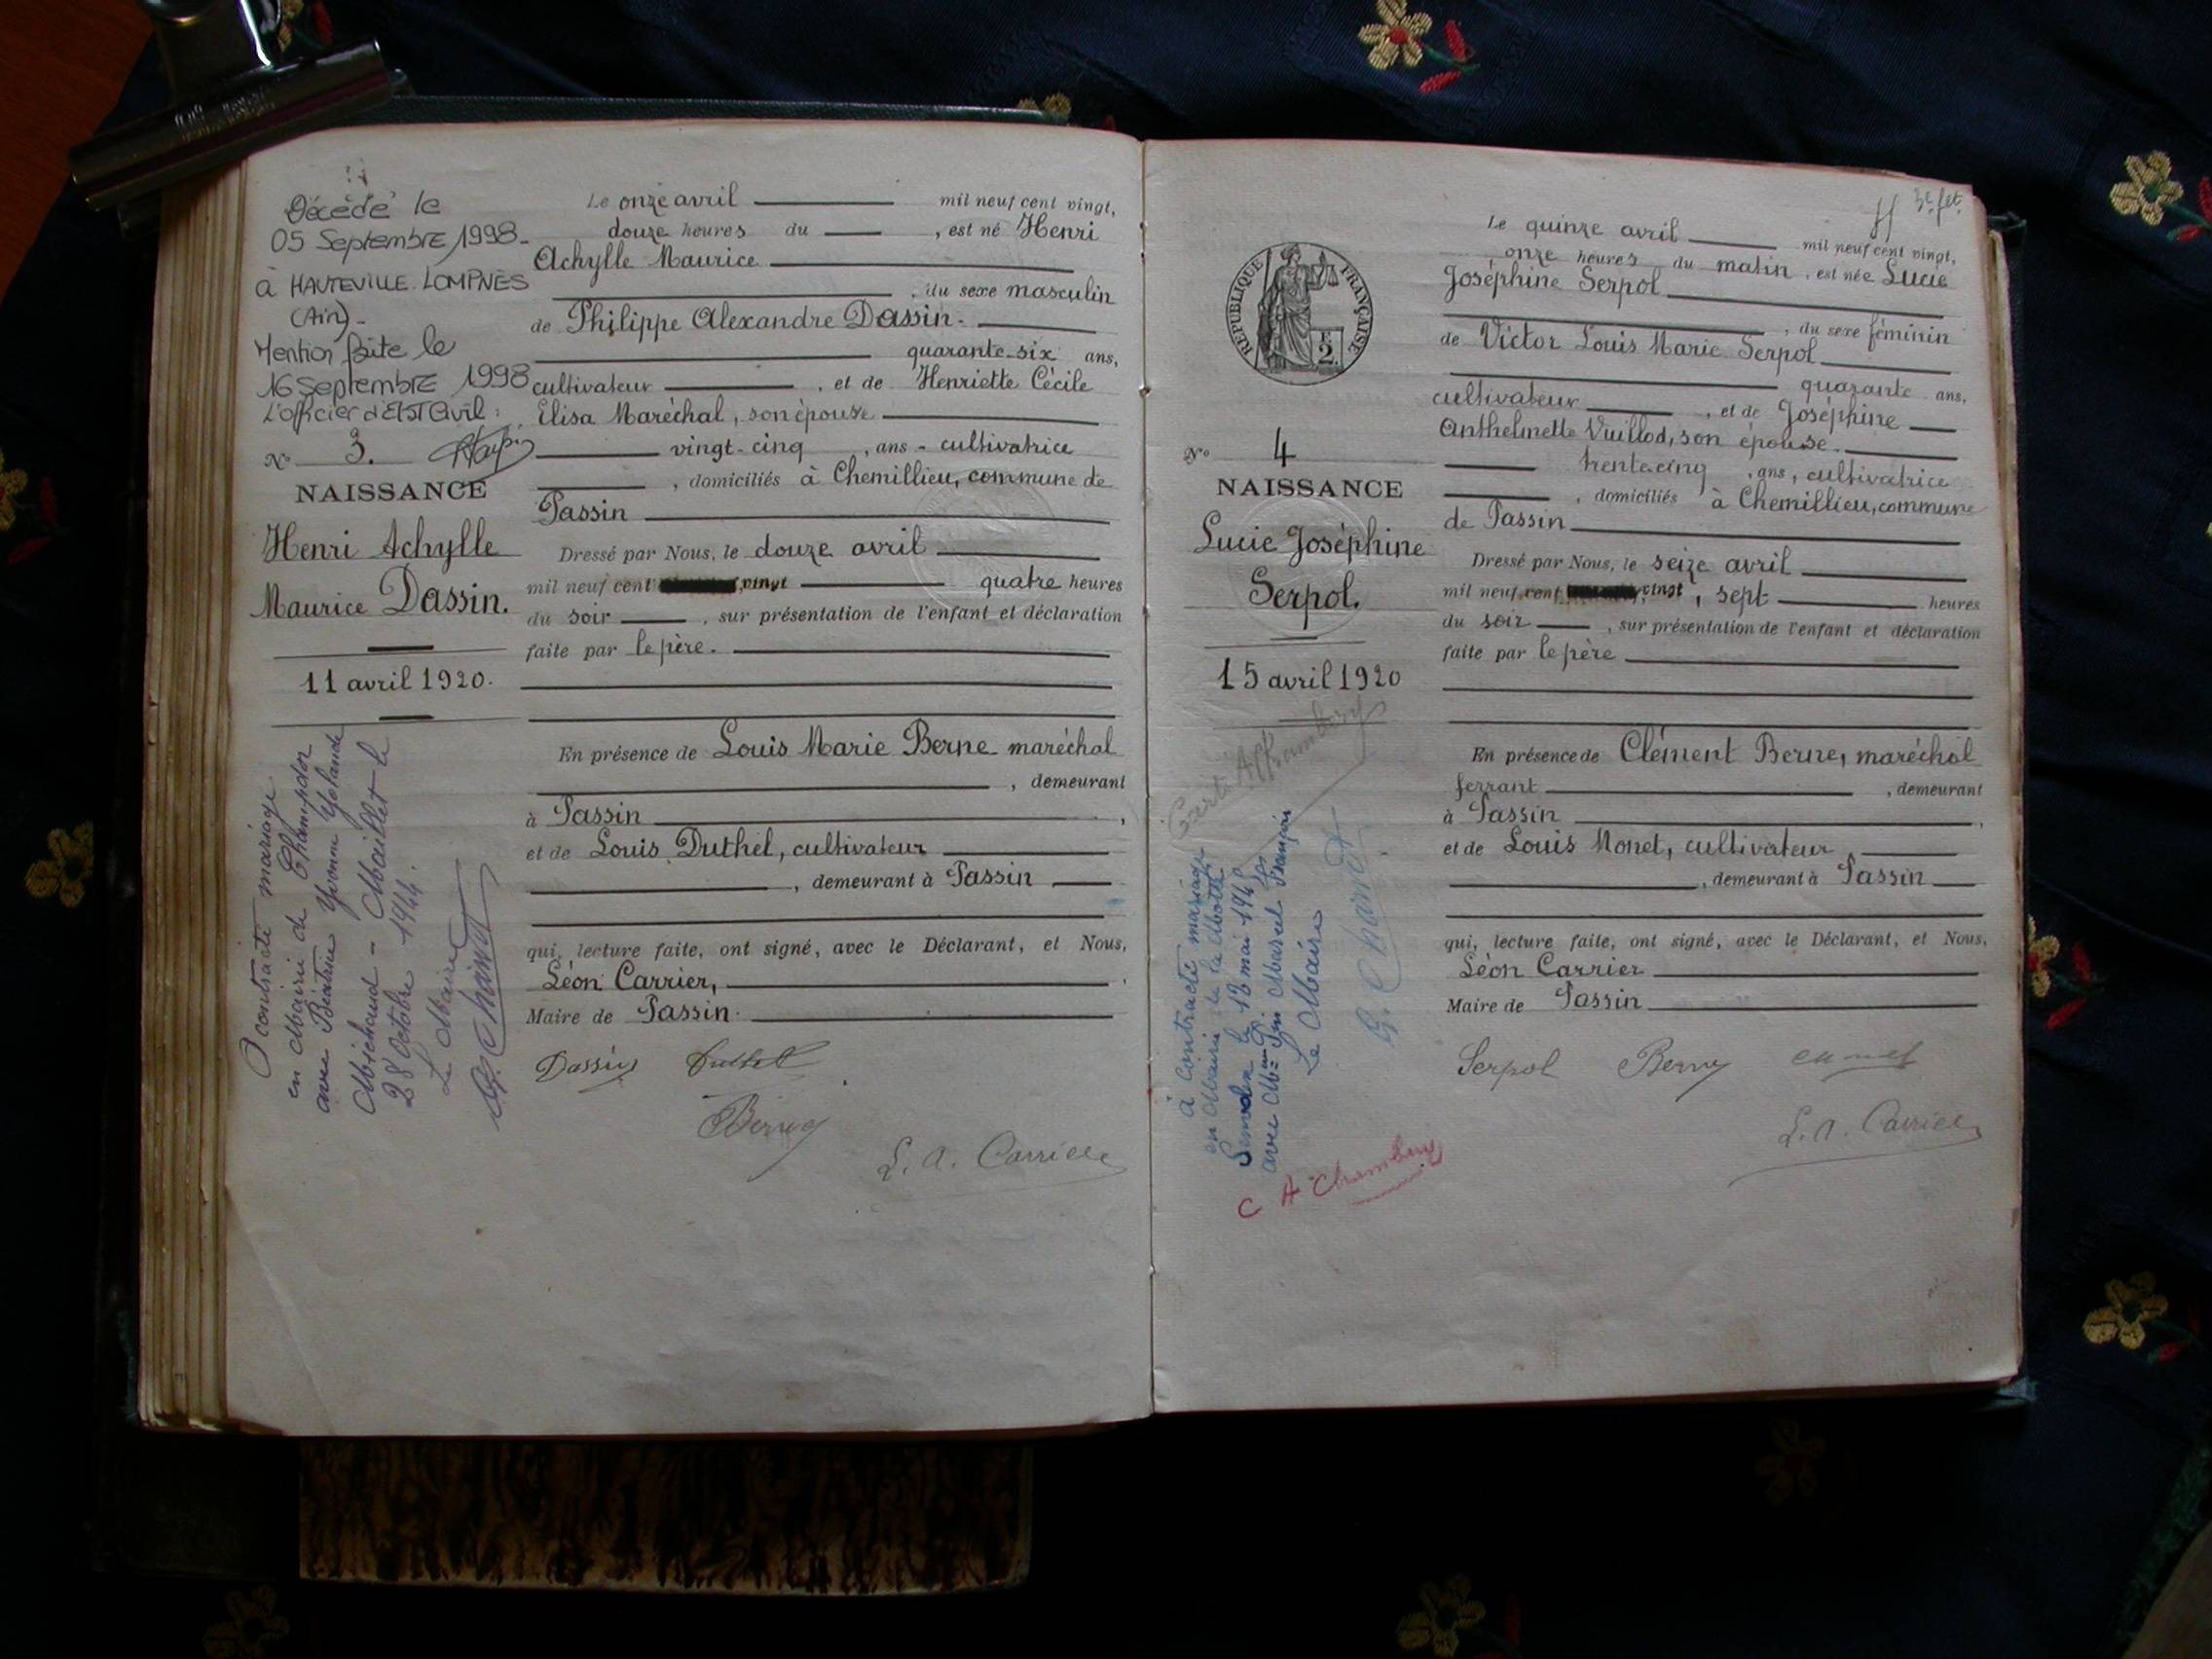 Décédé le
05 Septembre 1998.
à HAUTEVILLE. LOMPNES
(Ain).
Mention faite le
16 Septembre 1998
L'officier d'Etat Civil:
N° 3.
NAISSANCE
Henri Achylle
Maurice Dassin.
11 avril 1920.
A contracté mariage
en Mairie de Champdor
avec Béatrice Yvonne Yolande
Michaud - Maillet le
28 Octobre 1944.
Le Maire
Le onze avril mil neuf cent vingt,
douze heures du , est né Henri
Achylle Maurice
, du sexe masculin
de Philippe Alexandre Dassin.
quarante-six ans,
cultivateur , et de Henriette Cécile
Elisa Maréchal, son épouse
vingt-cinq , ans - cultivatrice
, domiciliés à Chemillieu, commune de
Passin
Dressé par Nous, le douze avril
mil neuf cent vingt quatre heures
du soir , sur présentation de l'enfant et déclaration
faite par le père.
En présence de Louis Marie Berne maréchal
, demeurant
à Passin ,
et de Louis Duthel, cultivateur
, demeurant à Passin
qui, lecture faite, ont signé, avec le Déclarant, et Nous,
Léon Carrier, ,
Maire de Passin.
Dassin Duthel
Berne
L. A. Carrier
3e fet.
RÉPUBLIQUE FRANÇAISE
2
N° 4
NAISSANCE
Lucie Joséphine
Serpol.
15 avril 1920
à contracté mariage
en Mairie de la
le 13 mai
avec Marcel François
Le Maire
G. Charvet
C A Chambery
Le quinze avril mil neuf cent vingt,
onze heures du matin , est née Lucie
Joséphine Serpol
, du sexe féminin
de Victor Louis Marie Serpol
quarante ans,
cultivateur , et de Joséphine
Anthelmette Vuillod, son épouse.
trente cinq , ans, cultivatrice
, domiciliés à Chemillieu, commune
de Passin
Dressé par Nous, le seize avril
mil neuf cent vingt , sept heures
du soir , sur présentation de l'enfant et déclaration
faite par le père
En présence de Clément Berne, maréchal
ferrant , demeurant
à Passin ,
et de Louis Monet, cultivateur
, demeurant à Passin
qui, lecture faite, ont signé, avec le Déclarant, et Nous,
Léon Carrier
Maire de Passin
Serpol Berne
L. A. Carrier